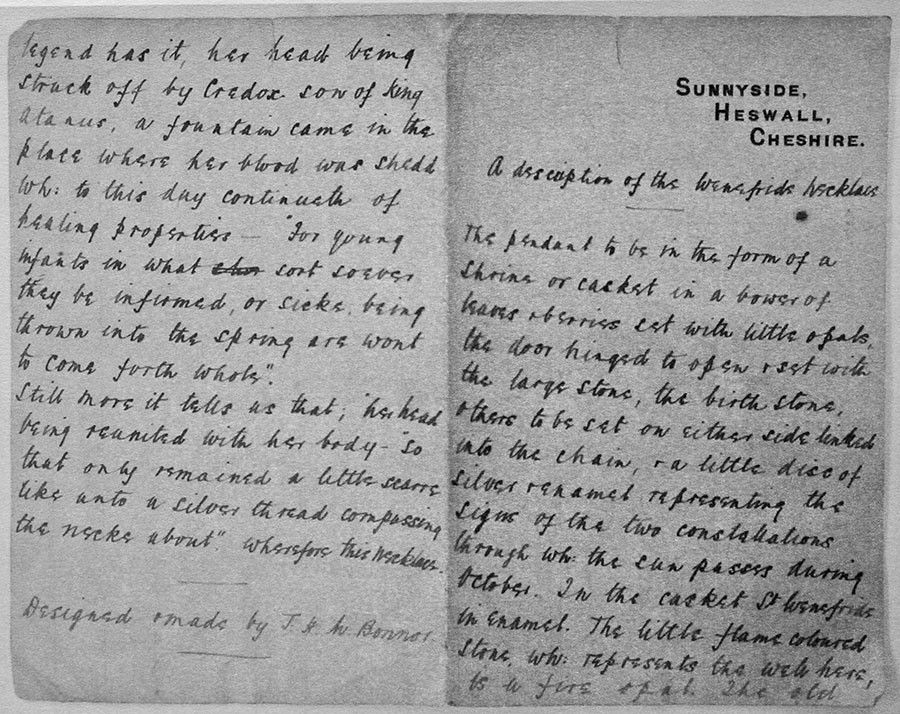 SUNNYSIDE,
HESWALL,
CHESHIRE.
A desciption of the Wenefride Necklace
The pendant to be in the form of a
shrine or casket in a bower of
leaves & berries set with little opals,
the door hinged to open & set with
the large stone, the birth stone,
others to be set on either side linked
into the chain, & a little disc of
silver & enamel representing the
signs of the two constallations
through wh: the sun passes during
October. In the casket St Wenefride
in enamel. The little flame coloured
stone, wh: represents the well here,
is a fire opal. The old
legend has it, her head being
struck off by Credox son of King
Alanus, a fountain came in the
place where her blood was shedd
wh: to this day continueth of
healing properties — "For young
infants in what sort soever
they be infirmed, or sicke, being
thrown into the spring are wont
to come forth whole".
Still more it tells us that, "her head
being reunited with her body - "So
that only remained a little scarre
like unto a silver thread compassing
the necke about". Wherefore this Necklace.
Designed & made by J. H. M. Bonnor